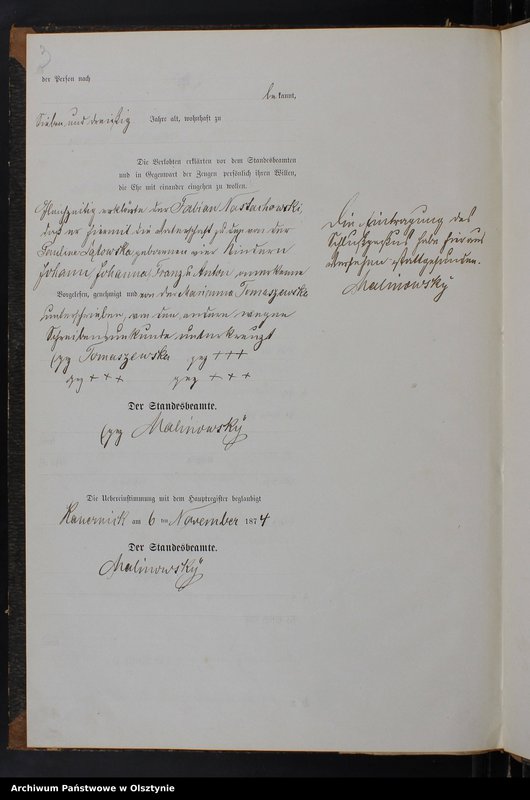 3
der Person nach
be kannt,
Sieben und dreißig Jahre alt, wohnhaft zu
Die Verlobten erklärten vor dem Standesbeamten
und in Gegenwart der Zeugen persönlich ihren Willen,
die Ehe mit einander eingehen zu wollen.
Gleichzeitig erklärte der Fabian Nastachowski,
daß er hiermit die Vaterschaft zu den von der
Pauline Sątowska geborenen vier Kindern
Johann, Johanna, Franz & Anton, anerkenne
Vorgelesen, genehmigt und von der Marianna Tomaszewska
unterschrieben, von den andern wegen
Schreibensunkunde unterkreuzt
(gez Tomaszewska gez +++
gez +++ gez +++
Der Standesbeamte.
(gez Malinowsky
Die Eintragung des
Schlußpassus habe hier aus
Versehen stattgefunden.
Malinowsky
Die Uebereinstimmung mit dem Hauptregister beglaubigt
Kauernick am 6 ten November 1874
Der Standesbeamte.
Malinowsky
Archiwum Państwowe w Olsztynie